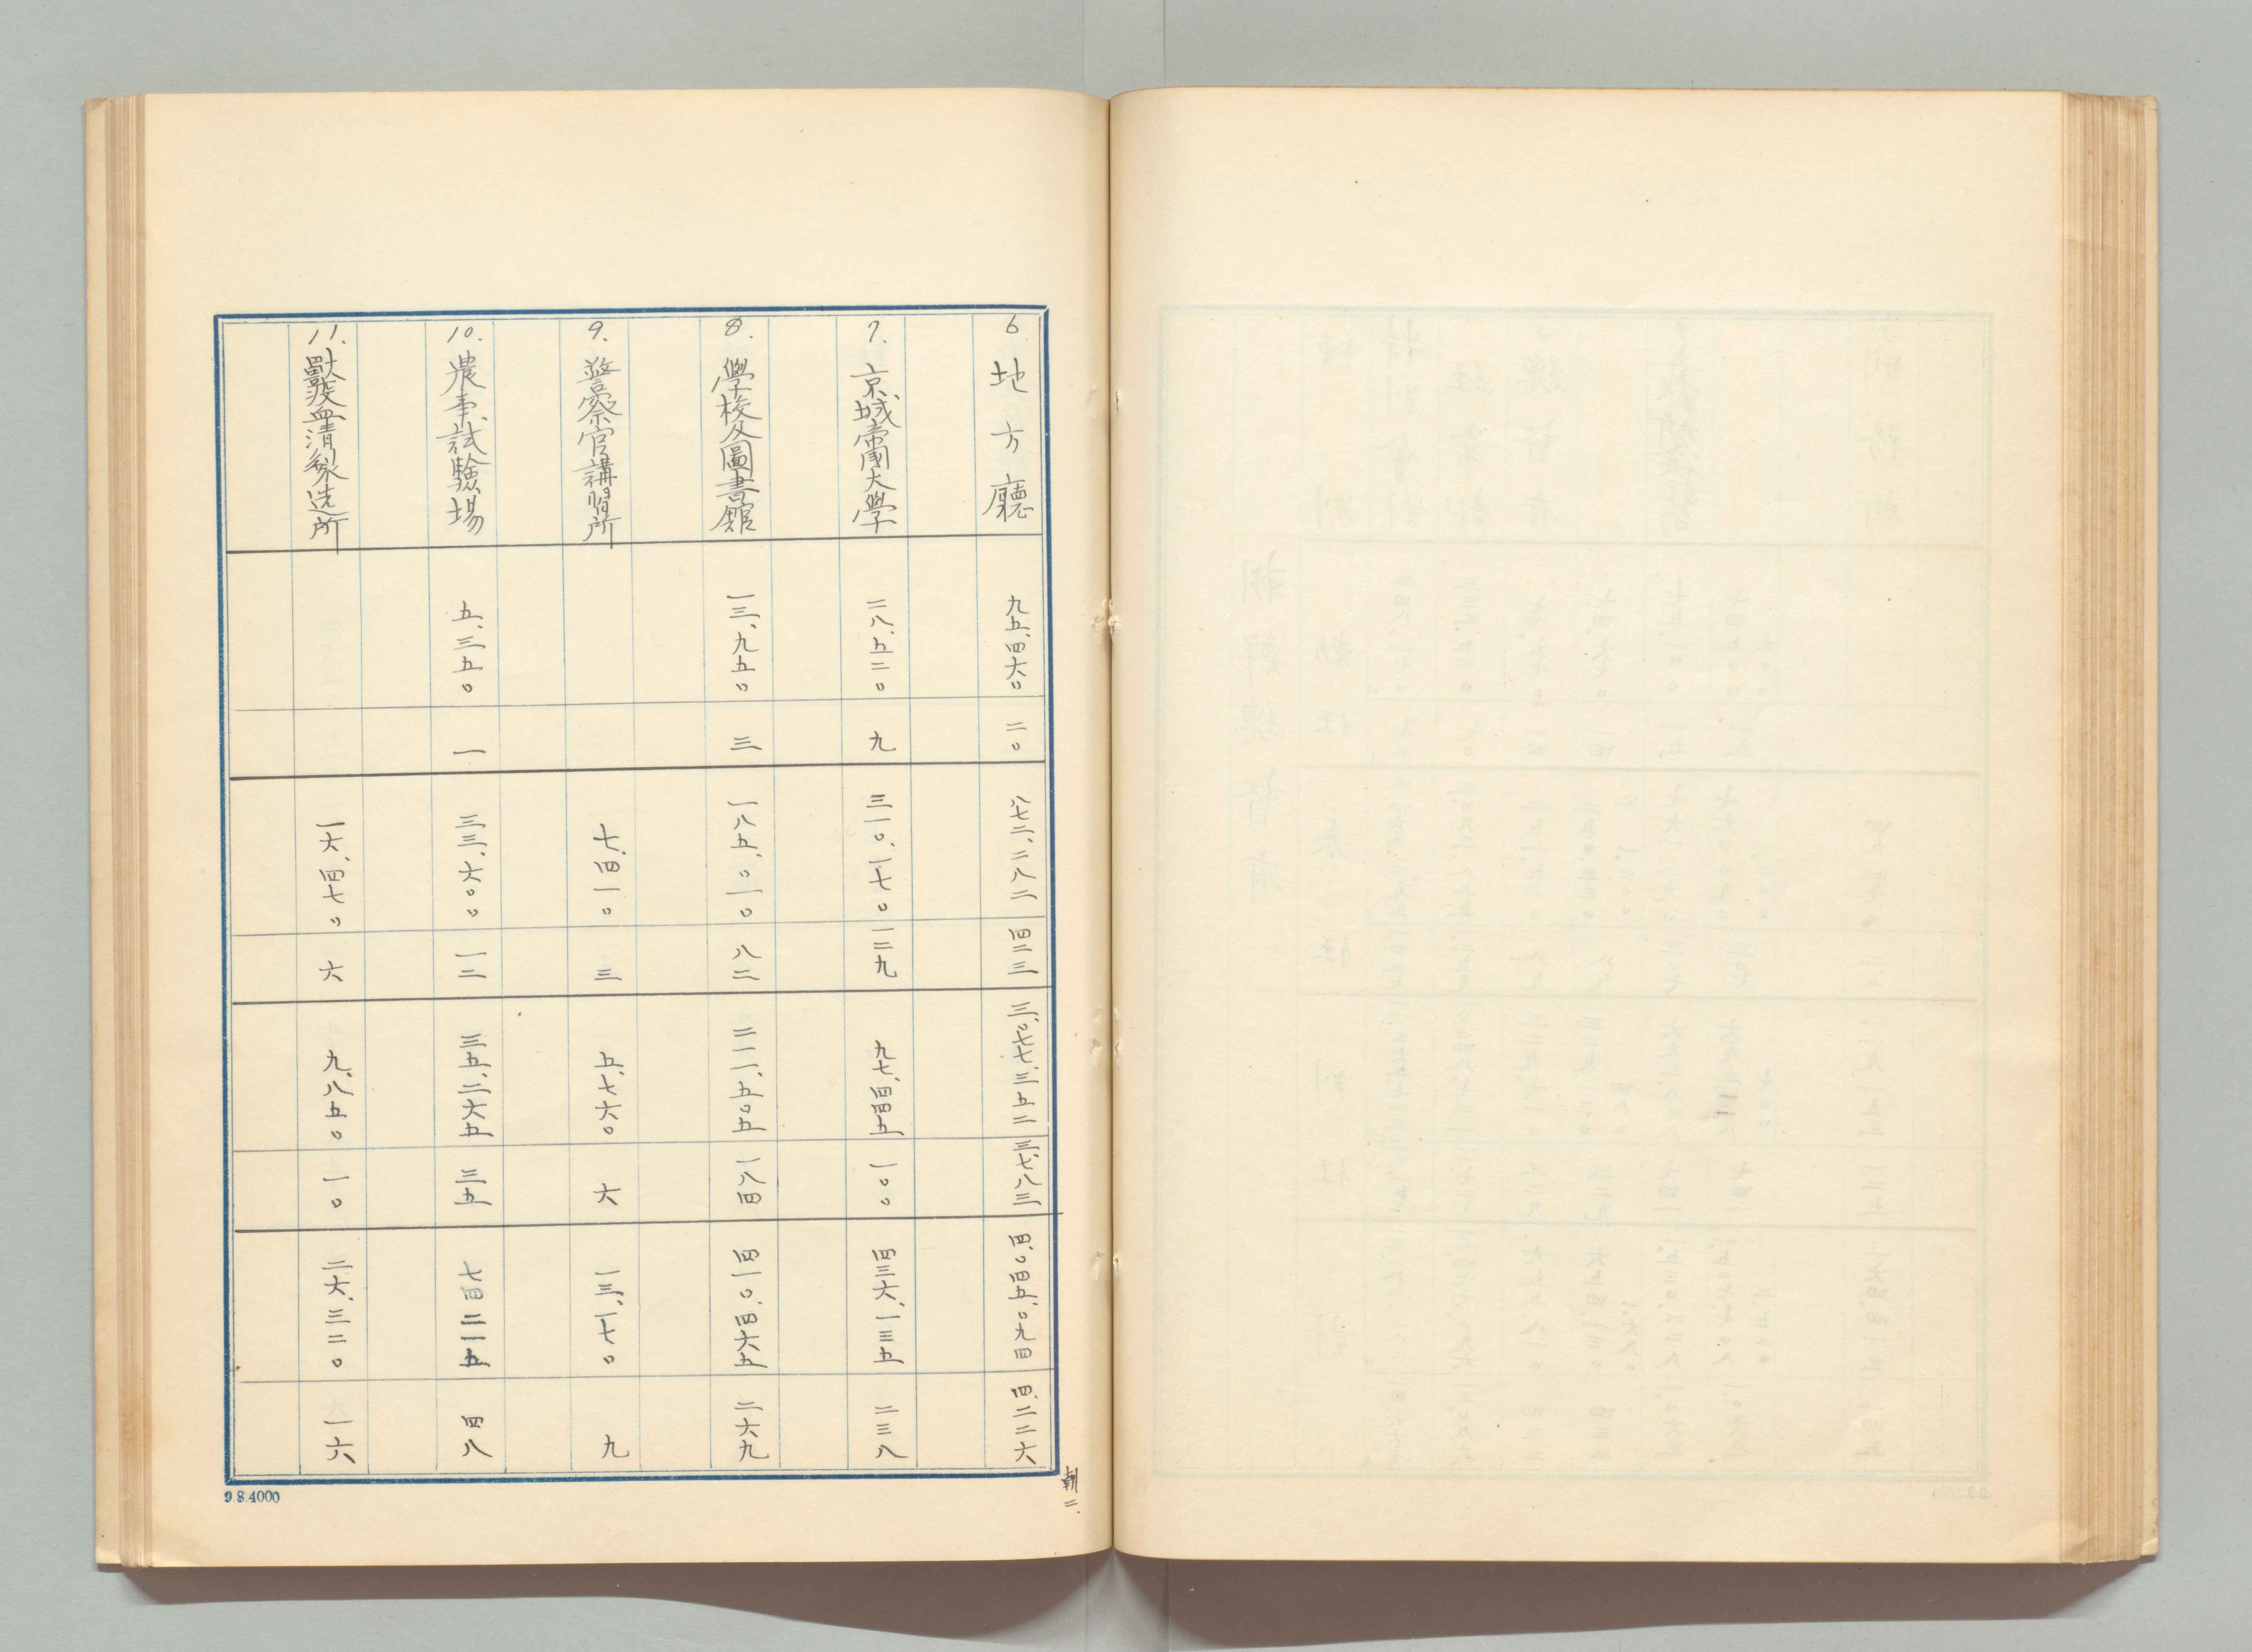 6. 地方廳 九五、四六〇 二〇 八七二、二八二 四二三 三、〇七七、三五二 三、七八三 四、〇四五、〇九四 四、二二六
7. 京城帝國大學 二八、五二〇 九 三一〇、一七〇 一二九 九七、四四五 一〇〇 四三六、一三五 二三八
8. 學校及圖書館 一三、九五〇 三 一八五、〇一〇 八二 二一一、五〇五 一八四 四一〇、四六五 二六九
9. 警察官講習所 七、四一〇 三 五、七六〇 六 一三、一七〇 九
10. 農事試驗場 五、三五〇 一 三三、六〇〇 一二 三五、二六五 三五 七四二一五 四八
11. 獸疫血清製造所 一六、四七〇 六 九、八五〇 一〇 二六、三二〇 一六
朝二.
9.8.4000